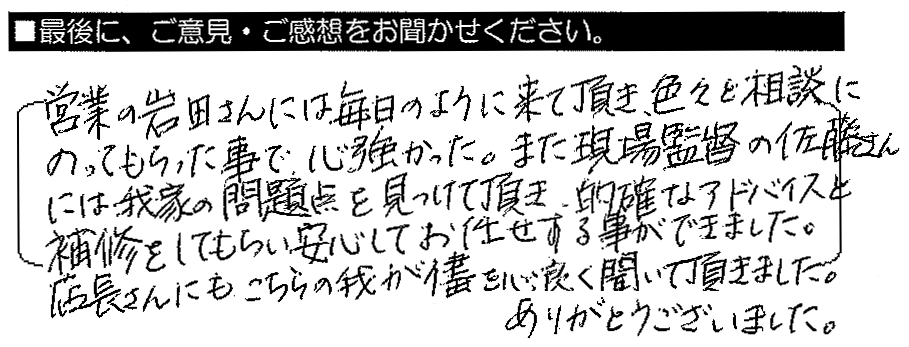 ■最後に、ご意見・ご感想をお聞かせください。
営業の岩田さんには毎日のように来て頂き、色々と相談に
のってもらった事で心強かった。また現場監督の佐藤さん
には我家の問題点を見つけて頂き、的確なアドバイスと
補修をしてもらい安心してお任せする事ができました。
店長さんにもこちらの我が儘を心良く聞いて頂きました。
ありがとうございました。